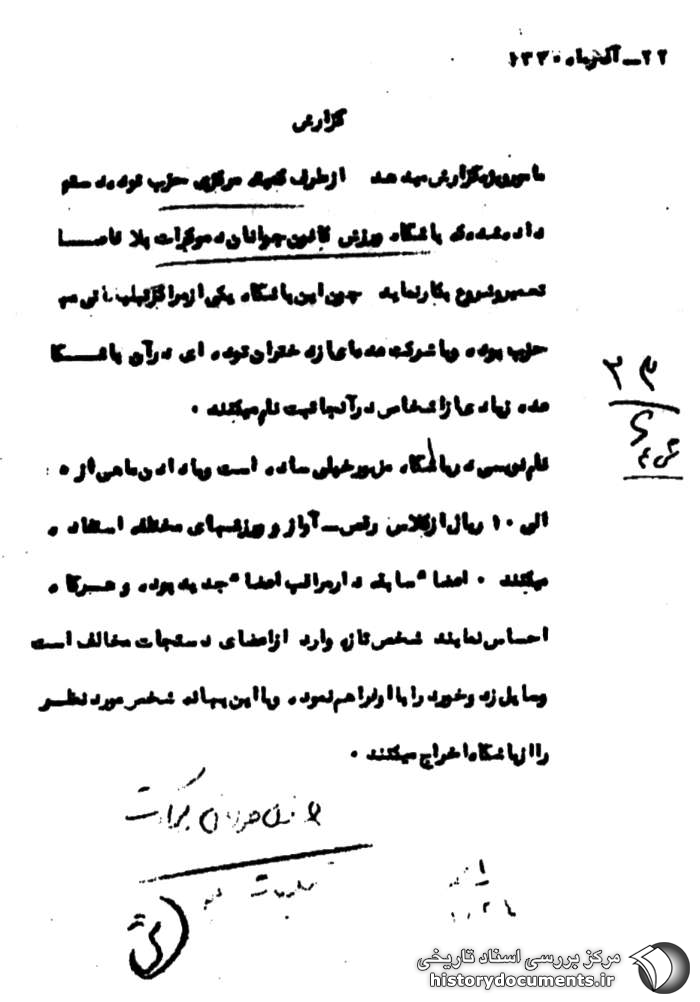 ۲۲ـ آذرماه ۱۳۳۰
گزارش
مامور ویژه گزارش میدهد از طرف کمیته مرکزی حزب توده دستو
داده شده که باشگاه ورزش کانون جوانان دموکرات بلا فاصـــا
تعمیر و شروع بکار نماید چون این باشگاه یکی از مراکز تبلیغاتی مهم
حزب بوده و با شرکت عده ای از دختران توده ای در آن باشـــگا
عده زیادی از اشخاص در آنجا ثبت نام میکنند ۰
نام نویسی در باشگاه مزبور خیلی ساده است و با دادن ماهی از ۵
الی ۱۰ ریال از کلاس رقص ـ آواز و ورزشهای مختلف استفاده
میکنند ۰ اعضاء سابقه دار مراقب اعضاء جدید بوده و هــرگاه
احساس نمایند شخص تازه وارد از اعضای دستجات مخالف است
وسایل زد و خورد را با او فراهم نموده و با این بهانه شخص مورد نظــر
را از باشگاه اخراج میکنند ۰
۲۳
مرکز بررسی اسناد تاریخی
historydocuments.ir